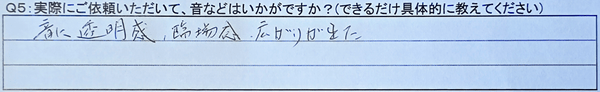 Q5:実際にご依頼いただいて、音などはいかがですか?(できるだけ具体的に教えてください)
音に透明感、臨場感、広がりが出た